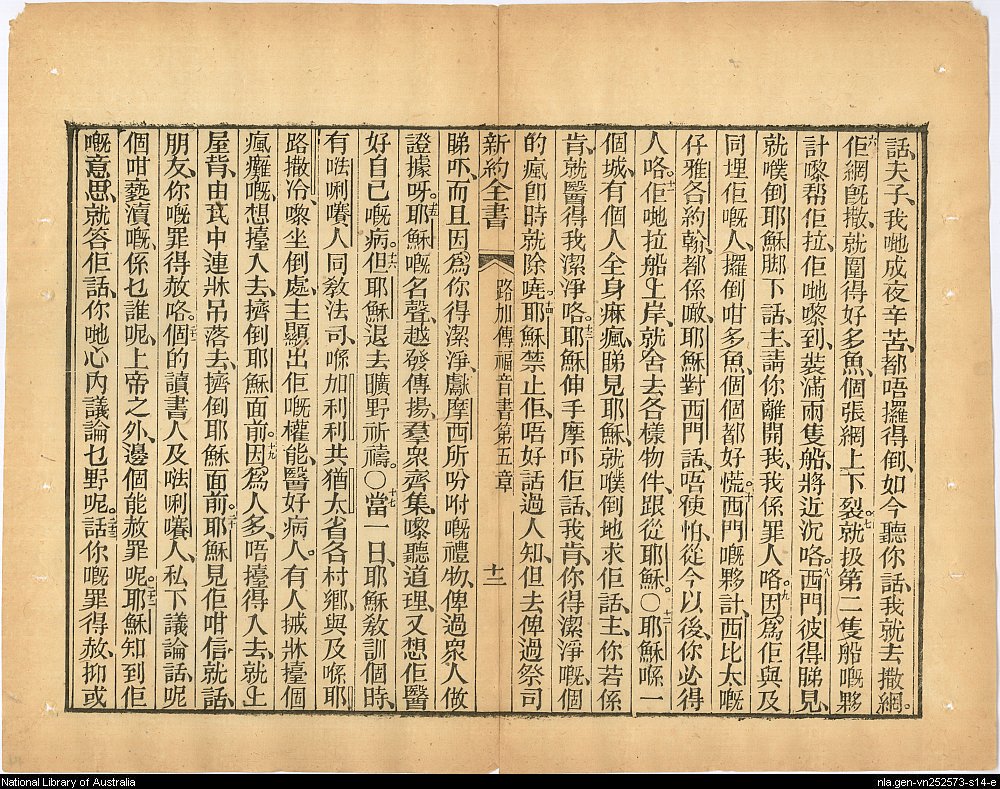 話、夫子、我哋成夜辛苦、都唔攞得倒、如今聽你話、我就去撒網。
六佢網既撒、就圍得好多魚、個張網上下裂。七就扱第二隻船嘅夥
計嚟帮佢拉、佢哋嚟到、裝滿兩隻船、將近沉咯。八西門彼得睇見、
就㒒倒耶穌脚下話、主、請你離開我、我係罪人咯。九因爲佢與及
同埋佢嘅人、攞倒咁多魚、個個都好慌。十西門嘅夥計、西比太嘅
仔雅各約翰、都係噉、耶穌對西門話、唔使怕、從今以後、你必得
人咯。十一佢哋拉船上岸、就舍去各樣物件、跟從耶穌。〇十二耶穌喺一
個城、有個人全身麻瘋、睇見耶穌、就㒒倒地求佢話、主、你若係
肯、就醫得我潔淨咯。十三耶穌伸手摩吓佢話、我肯、你得潔淨嘅、個
的瘋卽時就除嘵。十四耶穌禁止佢、唔好話過人知、但去俾過祭司
新約全書 路加傳福音書第五章 十二
睇吓、而且因爲你得潔淨、獻摩西所吩咐嘅禮物、俾過衆人做
證據呀。十五耶穌嘅名聲、越發傳揚、羣衆齊集、嚟聽道理、又想佢醫
好自己嘅病。十六但耶穌退去曠野祈禱。〇十七當一日、耶穌敎訓個時、
有𠵽唎嚽人同敎法司、喺加利利共猶太省各村鄉、與及喺耶
路撒冷、嚟坐倒處、主顯出佢嘅權能、醫好病人。有人搣牀擡個
瘋癱嘅、想擡入去、擠倒耶穌面前。十九因爲人多、唔擡得入去、就上
屋背、由瓦中連牀吊落去、擠倒耶穌面前。二十耶穌見佢咁信、就話、
朋友、你嘅罪得赦咯。二一個的讀書人及𠵽唎嚽人、私下議論話、呢
個咁褻瀆嘅、係乜誰呢、上帝之外、邊個能赦罪呢。二二耶穌知到佢
嘅意思、就答佢話、你哋心內議論乜野呢。二三話你嘅罪得赦、抑或